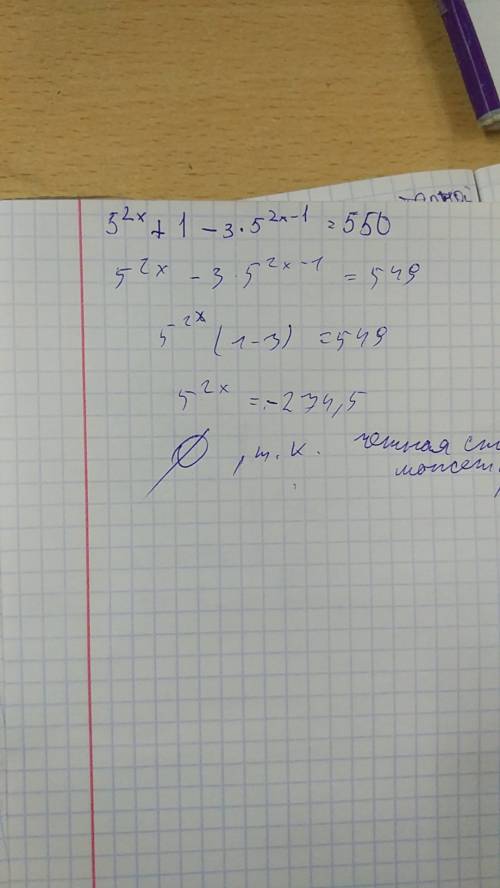 5^{2x} + 1 - 3 · 5^{2x-1} = 550
5^{2x} - 3 · 5^{2x-1} = 549
5^{2x} (1-3) = 549
5^{2x} = -274,5
∅, т. к. четная ст
может